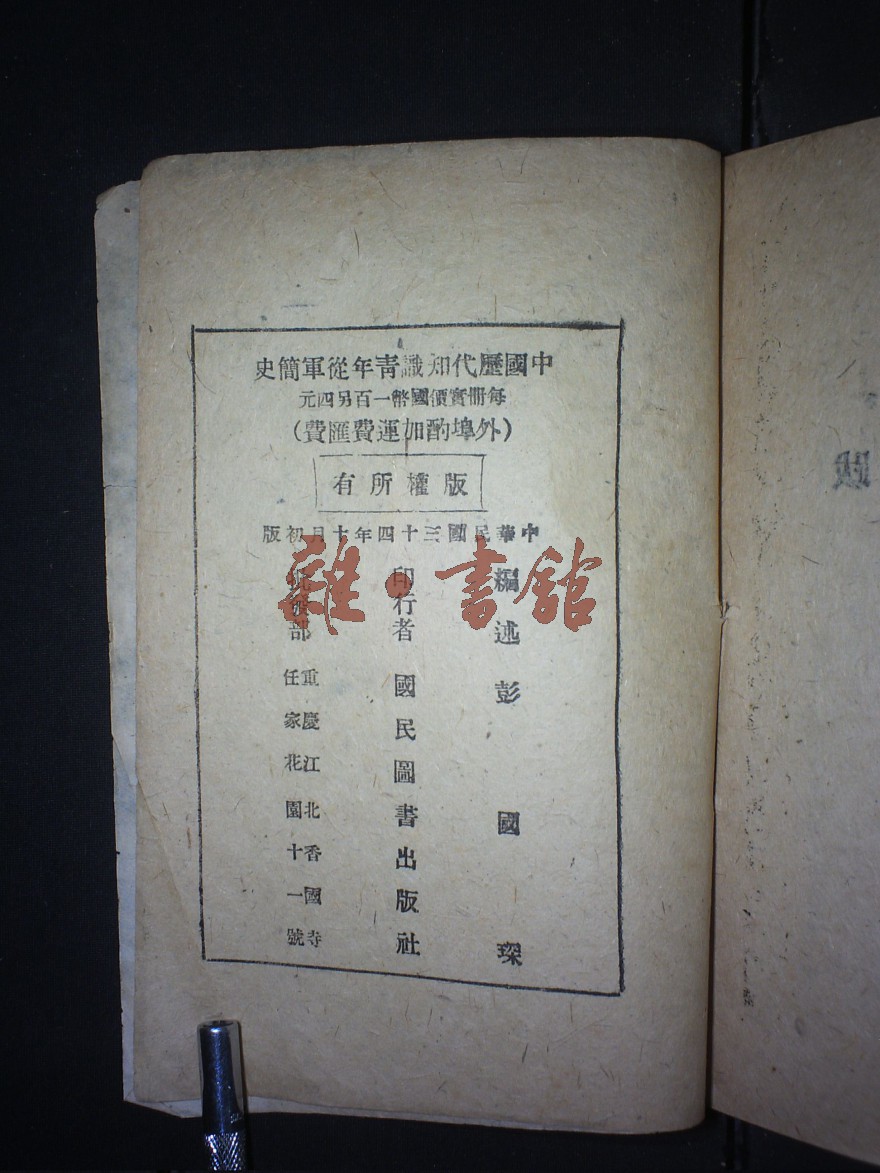 中國歷代知識青年從軍簡史
每冊實價國幣一百另四元
（外埠酌加運費匯費）
版權所有
中華民國三十四年十月初版
編述 彭國琛
印行者 國民圖書出版社
批發部 重慶江北香國寺
任家花園十一號
雜·書館
版